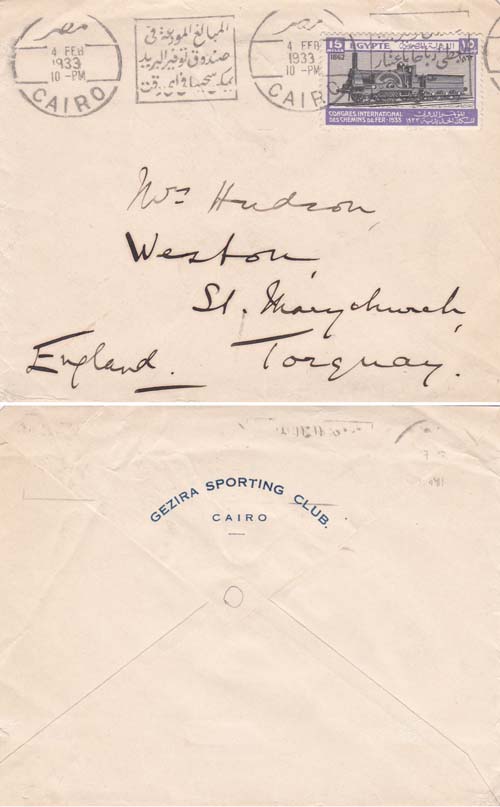 مصر
4 FEB
1933
10-PM
CAIRO
المبالغ المودعة فى
صندوق توفير البريد
يمكن سحبها فى اى وقت
مصر
4 FEB
1933
10-PM
CAIRO
15 EGYPTE ١٥
1862
CONGRES INTERNATIONAL
DES CHEMINS DE FER-1933
Mrs Hudson,
Weston,
St. Marychurch,
England. Torquay.
GEZIRA SPORTING CLUB.
CAIRO